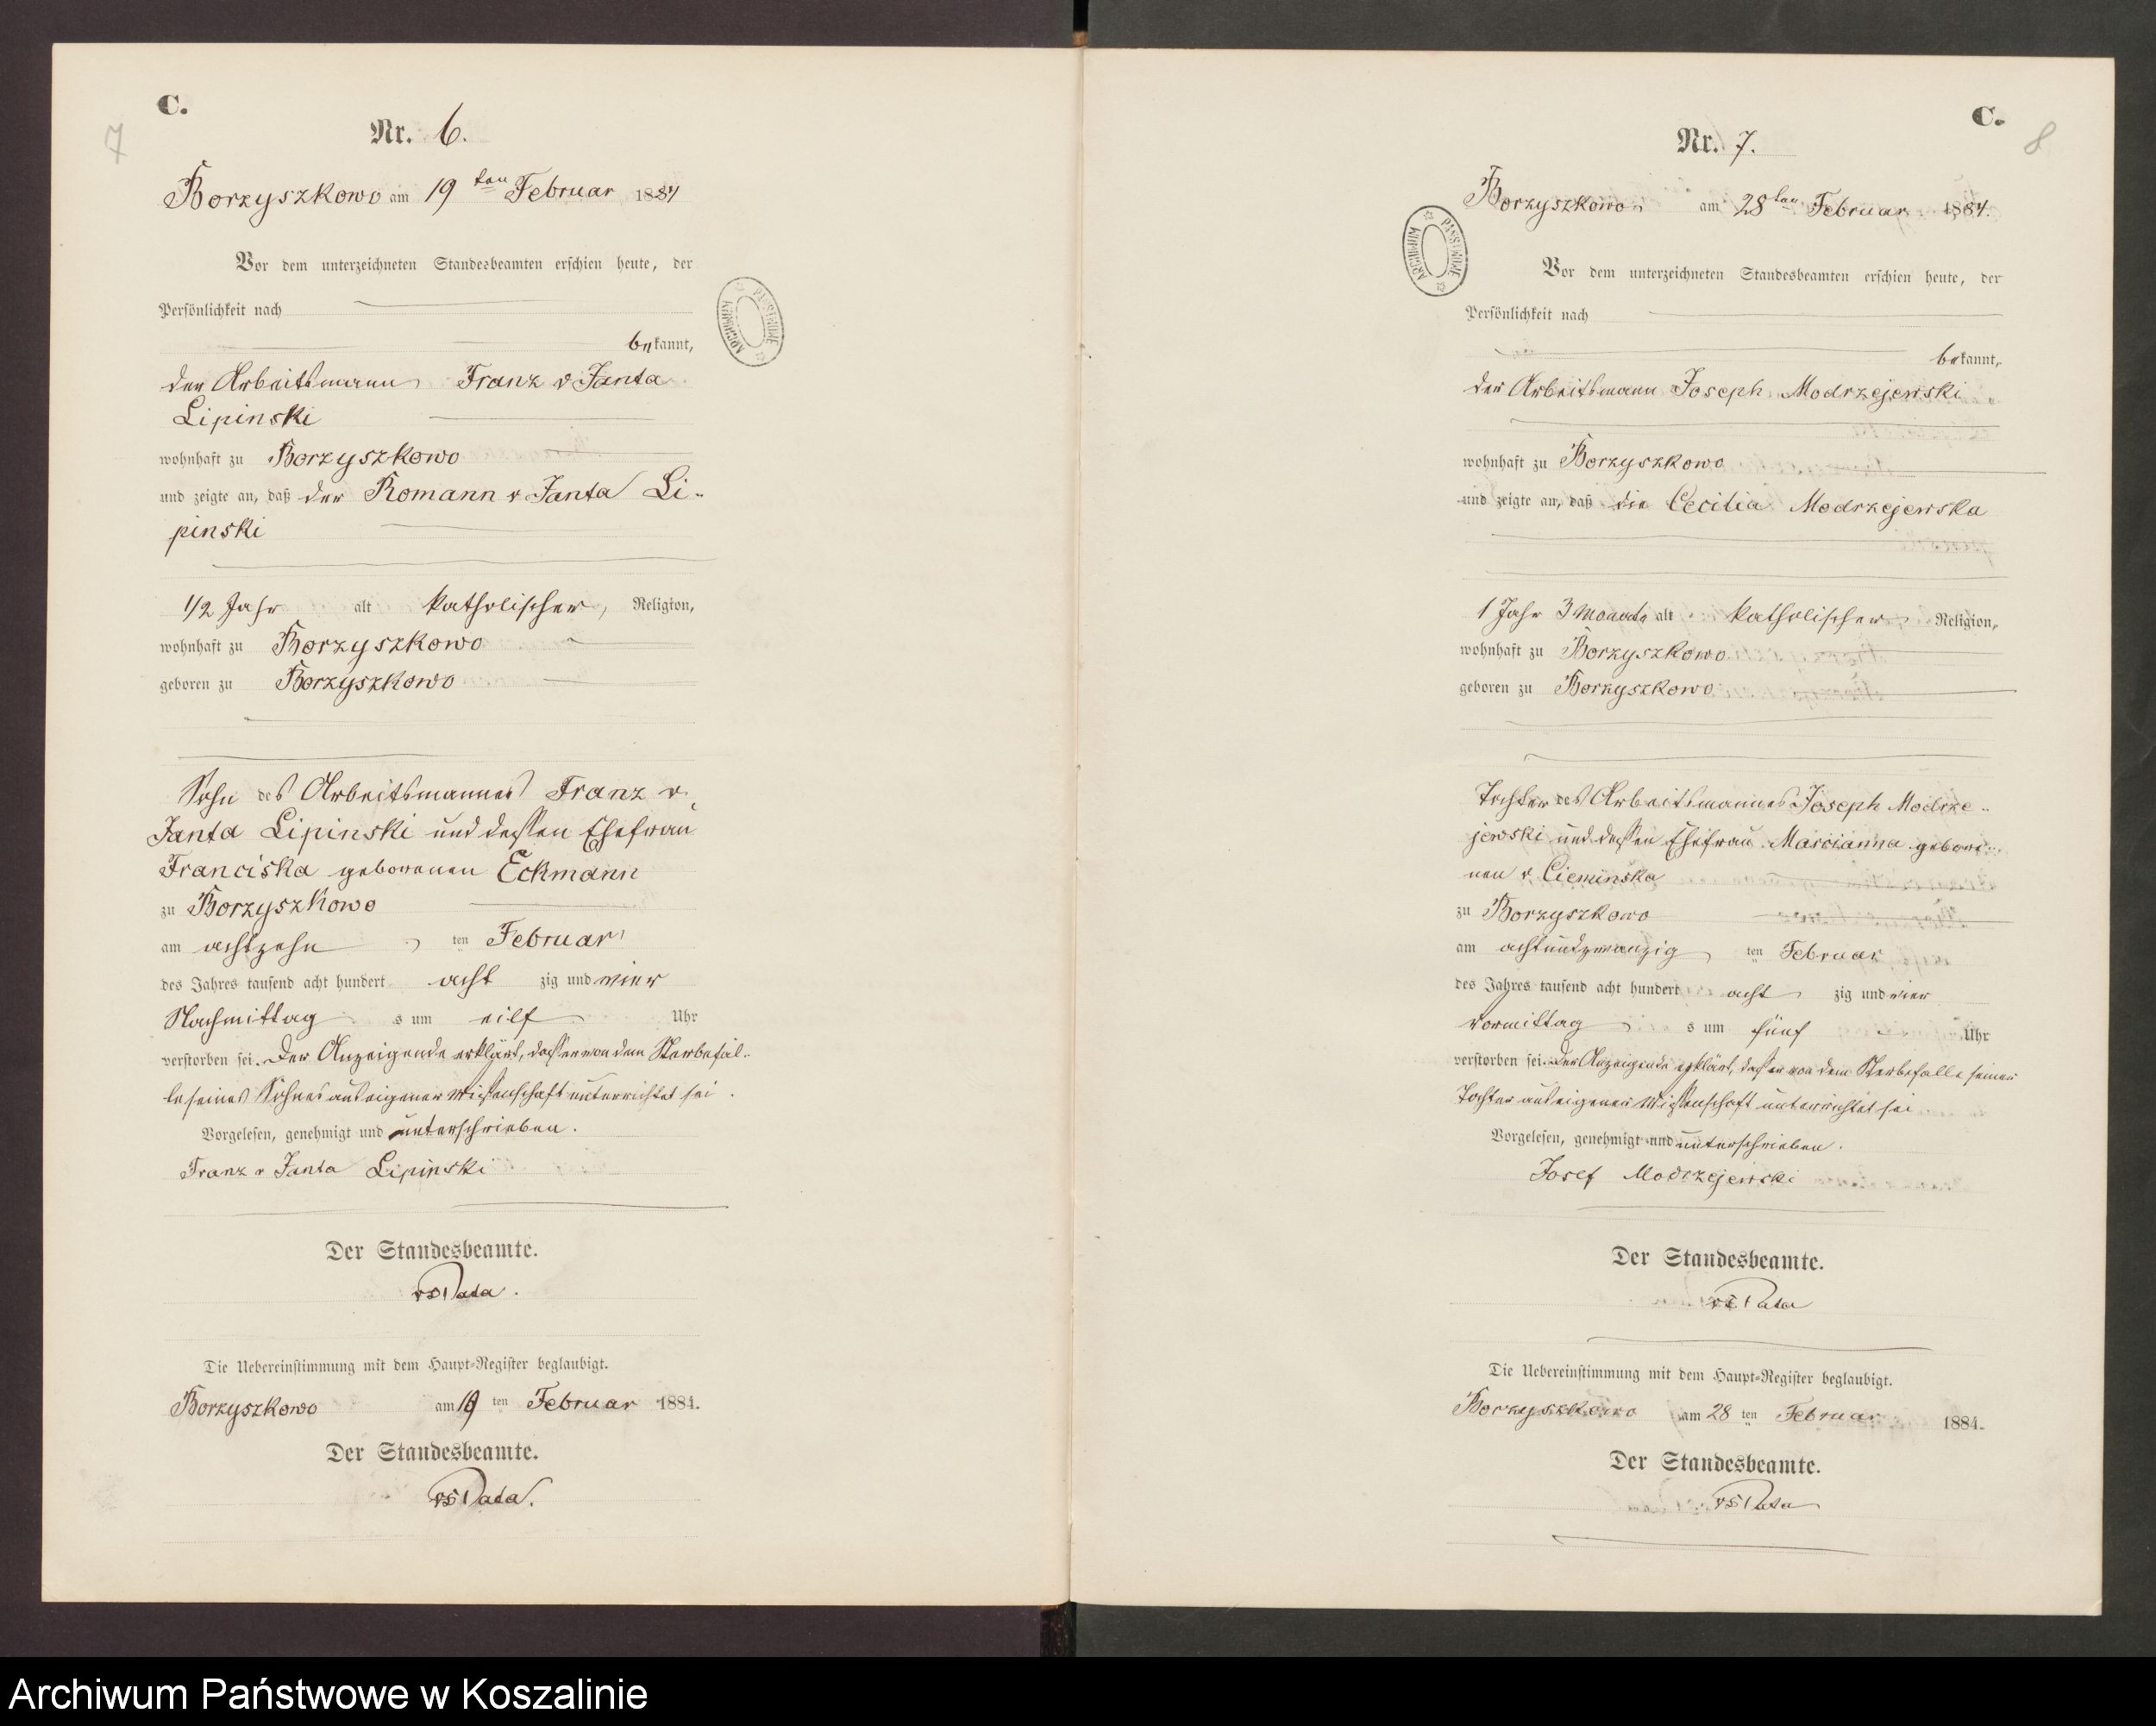 C.
7
Nr. 6.
Borzyszkowo am 19 ten Februar 1884
Vor dem unterzeichneten Standesbeamten erschien heute, der
Persönlichkeit nach
bekannt,
der Arbeitsmann Franz v Janta
Lipinski
wohnhaft zu Borzyszkowo
und zeigte an, daß der Romann v Janta Li-
pinski
1/2 Jahr alt katholischer, Religion,
wohnhaft zu Borzyszkowo
geboren zu Borzyszkowo
Sohn des Arbeitsmannes Franz v
Janta Lipinski und dessen Ehefrau
Franciska geborenen Eckmann
zu Borzyszkowo
am achtzehn ten Februar
des Jahres tausend acht hundert acht zig und vier
Nachmittag s um eilf Uhr
verstorben sei. Der Anzeigende erklärt, dass er von dem Sterbefal-
le seines Sohnes aus eigener Wissenschaft unterrichtet sei.
Vorgelesen, genehmigt und unterschrieben.
Franz v Janta Lipinski
Der Standesbeamte.
Die Uebereinstimmung mit dem Haupt-Register beglaubigt.
Borzyszkowo am 19 ten Februar 1884.
Der Standesbeamte.
ARCHIWUM PAŃSTWOWE
C.
8
Nr. 7.
Borzyszkowo am 28 ten Februar 1884.
Vor dem unterzeichneten Standesbeamten erschien heute, der
Persönlichkeit nach
bekannt,
der Arbeitsmann Joseph Modrzejewski
wohnhaft zu Borzyszkowo
und zeigte an, daß die Cecilia Modrzejewska
1 Jahr 3 Monate alt katholischer Religion,
wohnhaft zu Borzyszkowo
geboren zu Borzyszkowo
Tochter des Arbeitsmannes Joseph Modrze-
jewski und dessen Ehefrau Marcianna gebore-
nen v Cieminska
zu Borzyszkowo
am achtundzwanzig ten Februar
des Jahres tausend acht hundert acht zig und vier
Vormittag s um fünf Uhr
verstorben sei. Der Anzeigende erklärt, dass er von dem Sterbefalle seiner
Tochter aus eigener Wissenschaft unterrichtet sei
Vorgelesen, genehmigt und unterschrieben.
Josef Modrzejewski
Der Standesbeamte.
Die Uebereinstimmung mit dem Haupt-Register beglaubigt.
Borzyszkowo am 28 ten Februar 1884.
Der Standesbeamte.
ARCHIWUM PAŃSTWOWE
Archiwum Państwowe w Koszalinie